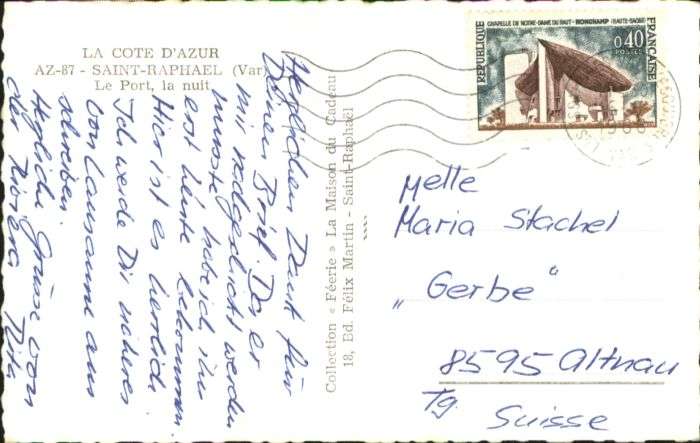 LA COTE D'AZUR
AZ-87 - SAINT-RAPHAEL (Var)
Le Port, la nuit
Herzlichen Dank für
Deinen Brief. Da er
mir nachgeschickt werden
musste, habe ich ihn
erst heute bekommen.
Hier ist es herrlich.
Ich werde Dir näheres
von Lausanne aus
schreiben.
Herzliche Grüsse von
der Riviera Rita
Collection « Féerie » La Maison du Cadeau
18, Ed. Félix Martin - Saint-Raphaël
REPUBLIQUE FRANÇAISE
CHAPELLE DE NOTRE-DAME DU HAUT - RONCHAMP (HAUTE-SAONE)
0,40
POSTES
Melle
Maria Stachel
„Gerbe"
8595 Altnau
Tg. Suisse